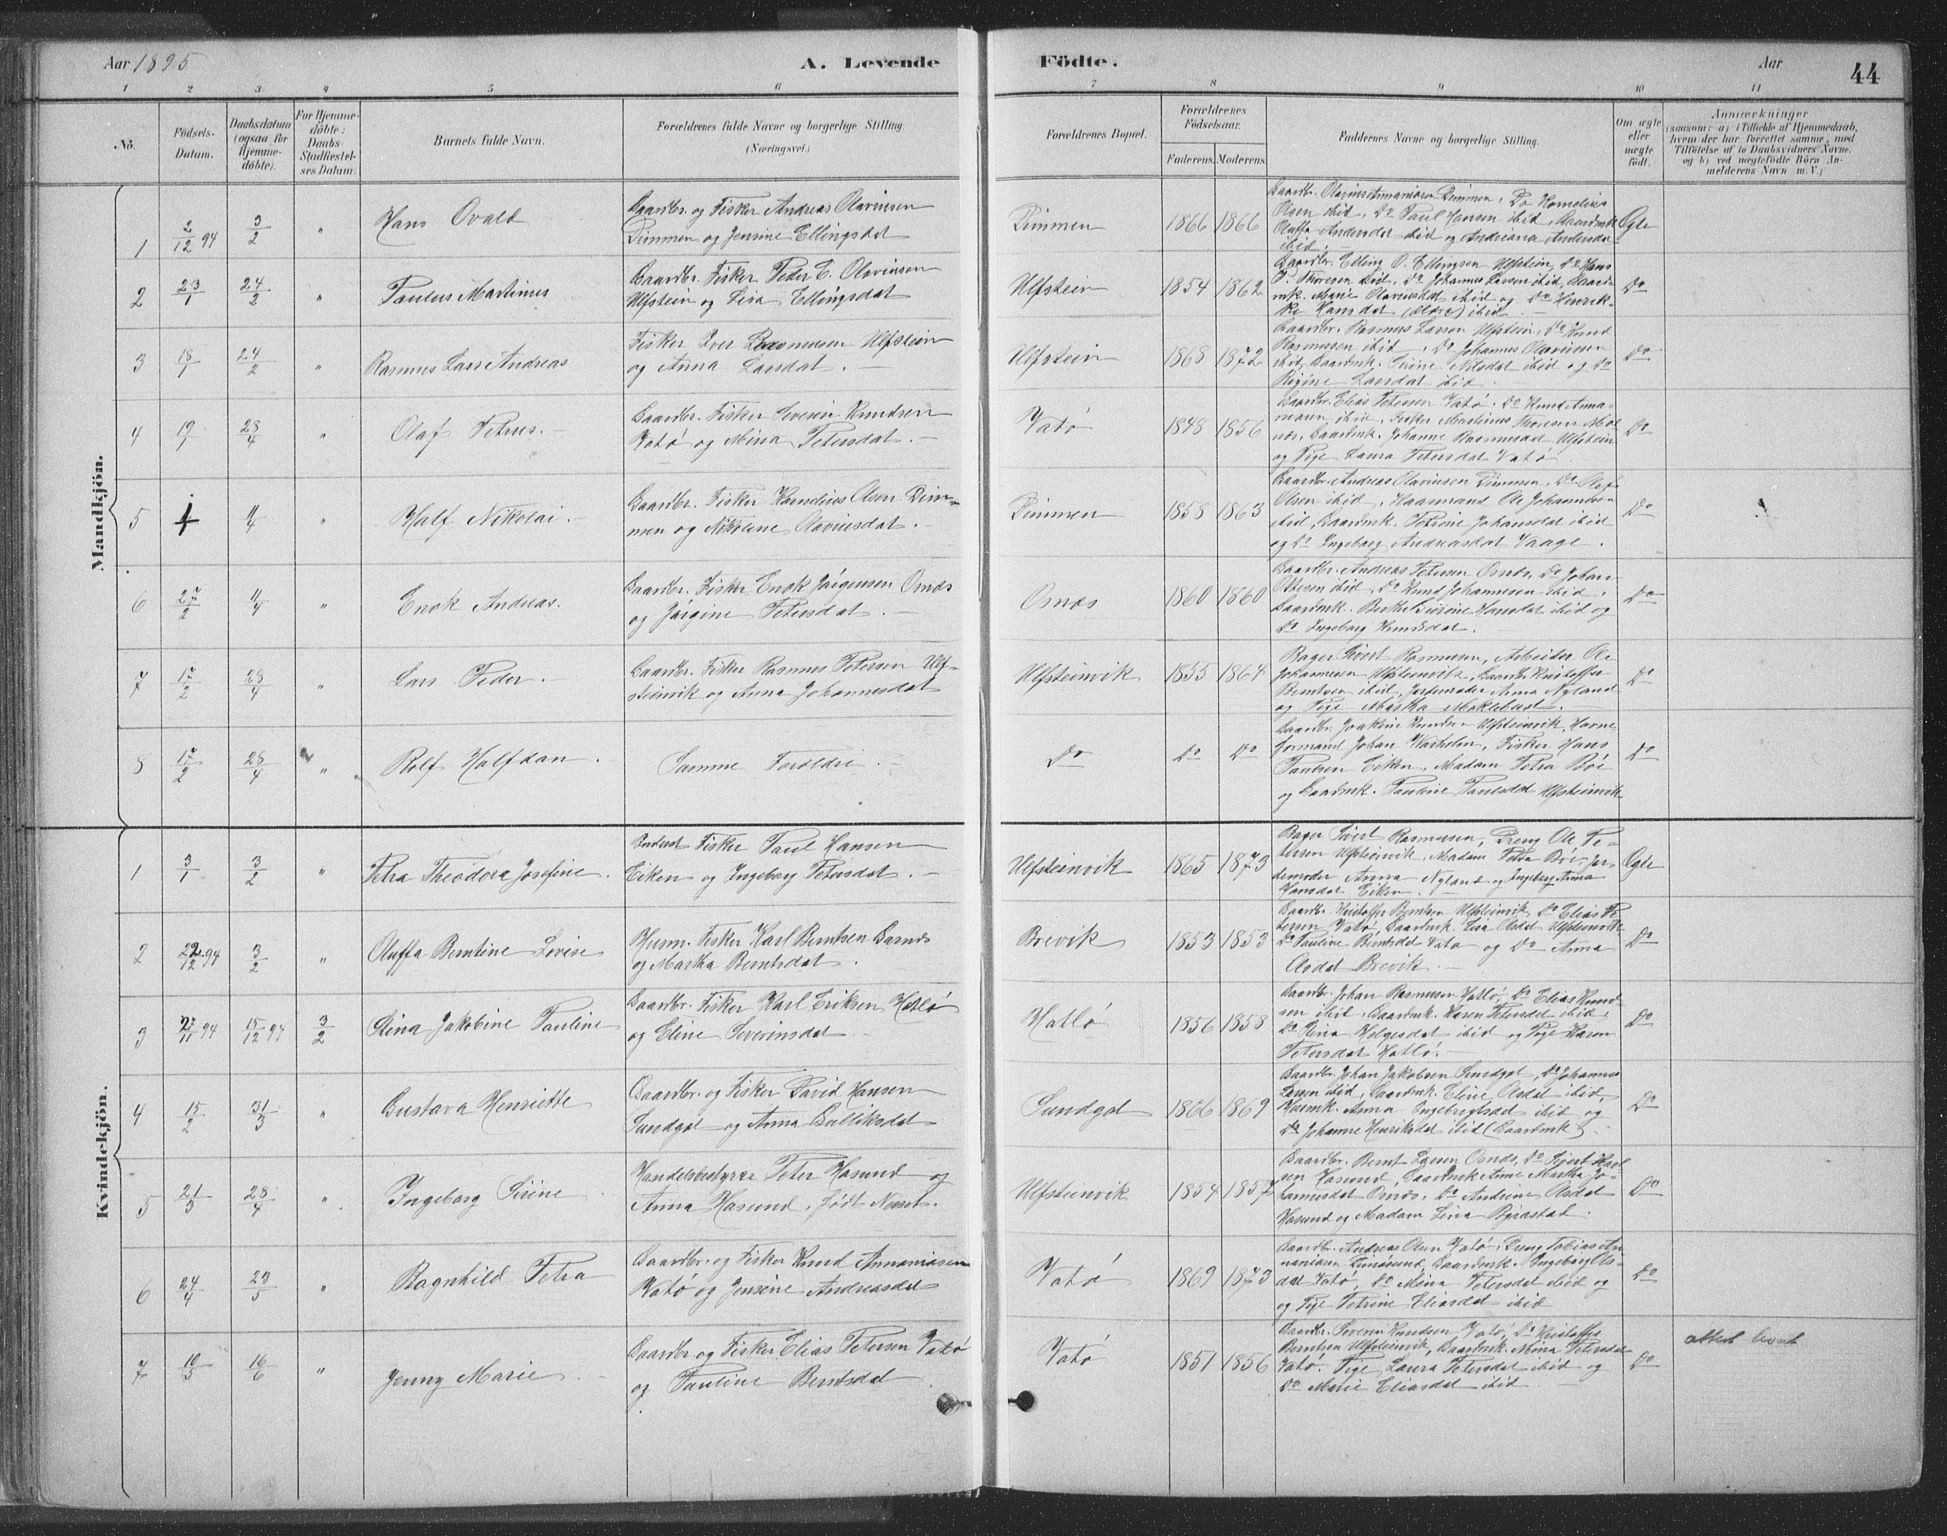 Aar 1895
A. Levende Födte.
Aar
44
1 2 3 4 5 6 7 8 9 10 11
No.
Födsels-
Datum.
Daabsdatum
(ogsaa for
Hjemme-
döbte).
For Hjemme-
döbte:
Daabs-
Stadfæstel-
ses Datum.
Barnets fulde Navn.
Forældrenes fulde Navne og borgerlige Stilling
(Næringsvei.)
Forældrenes Bopæl.
Forældrenes
Födselsaar.
Faderens. Moderens.
Faddernes Navne og borgerlige Stilling.
Om ægte
eller
uægte
født.
Anmærkninger
(saasom: a) i Tilfælde af Hjemmedaab,
hvem der har forrettet samme, med
Tilföielse af to Daabsvidners Navne,
og b) ved uægtefödte Börn An-
melderens Navn m. V.)
Mandkjön.
1 2/12 94 3/2 " Hans Ovald
Gaardbr. og Fisker Andreas Olavinsen
Dimmen og Jensine Ellingsdat
Dimmen 1866 1866
Gaardbr. Olavius Annaniasen Dimmen, Do Kornelius
Olsen ibid, Do Paul Hansen ibid, Gaardmk.
Oluffa Andersdat ibid og Andriana Andersdat
ibid.
Ægte
2 23/1 24/2 " Paulus Martinus
Gaardbr. Fisker Peder E. Olavinsen
Ulfstein og Lisa Ellingsdat
Ulfstein 1854 1862
Gaardbr. Elling O. Ellingsen Ulfstein, Do Hans
P. Thoresen ibid, Do Johannes Larsen ibid, Gaard-
mk. Marie Olavinsdat ibid og Do Henrik-
ke Hansdat (Ældre) ibid.
Do
3 18/1 24/2 " Rasmus Lars Andreas
Fisker Iver Rasmusen Ulfstein
og Anna Larsdat.
Ulfstein 1868 1872
Gaardbr. Rasmus Larsen Ulfstein, Do Knud
Rasmusen ibid, Do Johannes Olavinsen
ibid, Gaardmk. Sirine Nilsdat ibid og Do
Regine Larsdat ibid.
Do
4 19/1 28/4 " Olaf Petrus.
Gaardbr. Fisker Severin Knudsen
Vatö og Mina Petersdat.
Vatö 1848 1856
Gaardbr. Elias Petersen Vatö, Do Knud Anna-
niasen ibid, Fisker Martinus Thoresen
Gaardmk. Johanne Rasmusdat Ulfstein
og Pige Laura Petersdat Vatö.
Do
5 4/4 " Half Nikolai.
Gaardbr. Fisker Kornelius Olsen Dim-
men og Nikoline Olavinsdat.
Dimmen 1858 1863
Gaardbr. Andreas Olavinsen Dimmen, Do
Olsen ibid, Ole Johannesen
ibid, Gaardmk. Petrine Johansdat ibid
og Do Ingeborg Andreasdat Vaage.
Do
6 27/2 4/4 " Enok Andreas.
Gaardbr. Fisker Enok Jørgensen Osnæs
og Jørgine Petersdat.
Osnæs 1860 1860
Gaardbr. Andreas Petersen Osnæs, Do Johan
ibid, Do Knud Johannesen ibid,
Gaardmk. Berthe Hansdat ibid og
Do Ingeborg Knudsdat.
Do
7 17/2 28/4 " Lars Peder.
Gaardbr. Fisker Rasmus Petersen Ulf-
steinvik og Anna Johannesdat
Ulfsteinvik 1855 1864
Bager Sivert Rasmusen, Arbeider Ole
Johannesen Ulfsteinvik, Gaardbr. Kristoffer
Berntsen ibid, Jordemoder Anna Nyland
og Pige Martha Moklebust.
Do
8 17/2 28/4 " Rolf Halfdan.
Samme Forældre.
Do Do Do
Gaardbr. Joakim Knudsen Ulfsteinvik, Havne-
formand Johan, Fisker Hans
Paulsen Eiken, Madam Petra Böe
og Gaardmk. Pauline Paulsdat Ulfsteinvik
Do
Kvindekjön.
1 3/1 3/2 " Petra Theodora Josefine.
Inderst Fisker Paul Hansen
Eiken og Ingeborg Petersdat.
Ulfsteinvik 1865 1873
Bager Sivert Rasmusen, Dreng Ole Pe-
tersen Ulfsteinvik, Madam Petra Böe, Jor-
demoder Anna Nyland og Ingeborg Anna
Hansdat Eiken.
Ægte
2 22/12 94 3/2 " Oluffa Berntine Lovise
Husm. Fisker Karl Berntsen Garnæs
og Martha Berntsdat.
Brevik 1853 1853
Gaardbr. Kristoffer Berntsen Ulfsteinvik, Do Elias Pe-
tersen Vatö, Gaardmk. Lisa Asdat Ulfsteinvik
Do Pauline Berntsdat Vatö og Do Anna
Asdat Brevik.
Do
3 27/11 94 15/12 94 3/2 Stina Jakobine Pauline
Gaardbr. Fisker Karl Eriksen Hatlö
og Eline Severinsdat
Hatlö 1856 1858
Gaardbr. Johan Rasmusen Hatlö, Do Elias Knud-
sen ibid, Gaardmk. Karen Petersdat ibid,
Do Rina Helgesdat ibid og Pige Karen
Petersdat Hatlö.
Do
4 15/2 31/3 " Gustava Henriette
Gaardbr. og Fisker David Hansen
Sundgot og Anna Bulliksdat
Sundgot 1866 1869
Gaardbr. Johan Jakobsen Sundgot, Do Johannes
Larsen ibid, Gaardmk. Eline Asdat ibid,
Husmk. Anna Ingebrigtsdat ibid og
Do Johanne Henriksdat ibid (Gaardmk).
Do
5 21/3 28/4 " Ingeborg Sirine
Handelsbestyrer Peter Hasund og
Anna Hasund, født Nesset.
Ulfsteinvik 1854 1857
Gaardbr. Bernt Larsen Osnæs, Do Sivert Karl-
sen Hasund, Gaardmk. Anne Martha Jo-
hannesdat Osnæs, Do Andrine Olsdat
Hasund og Madam Lina Bjørstad.
Do
6 24/4 23/5 " Ragnhild Petra
Gaardbr. og Fisker Knud Annaniasen
Vatö og Jensine Andreasdat
Vatö 1869 1873
Gaardbr. Andreas Olsen Vatö, Dreng Tobias An-
naniasen, Gaardmk. Ingeborg Ols-
dat Vatö, Do Mina Petersdat ibid og
og Pige Petrine Eliasdat ibid
Do
7 10/5 16/6 " Jenny Marie
Gaardbr og Fisker Elias Petersen Vatö
og Pauline Berntsdat
Vatö 1851 1856
Gaardbr. Severin Knudsen Vatö, Do Kristoffer
Berntsen Ulfsteinvik, Gaardmk. Mina Petersdat
Vatö. Pige Laura Petersdat ibid og
Do Marie Eliasdat ibid
Do